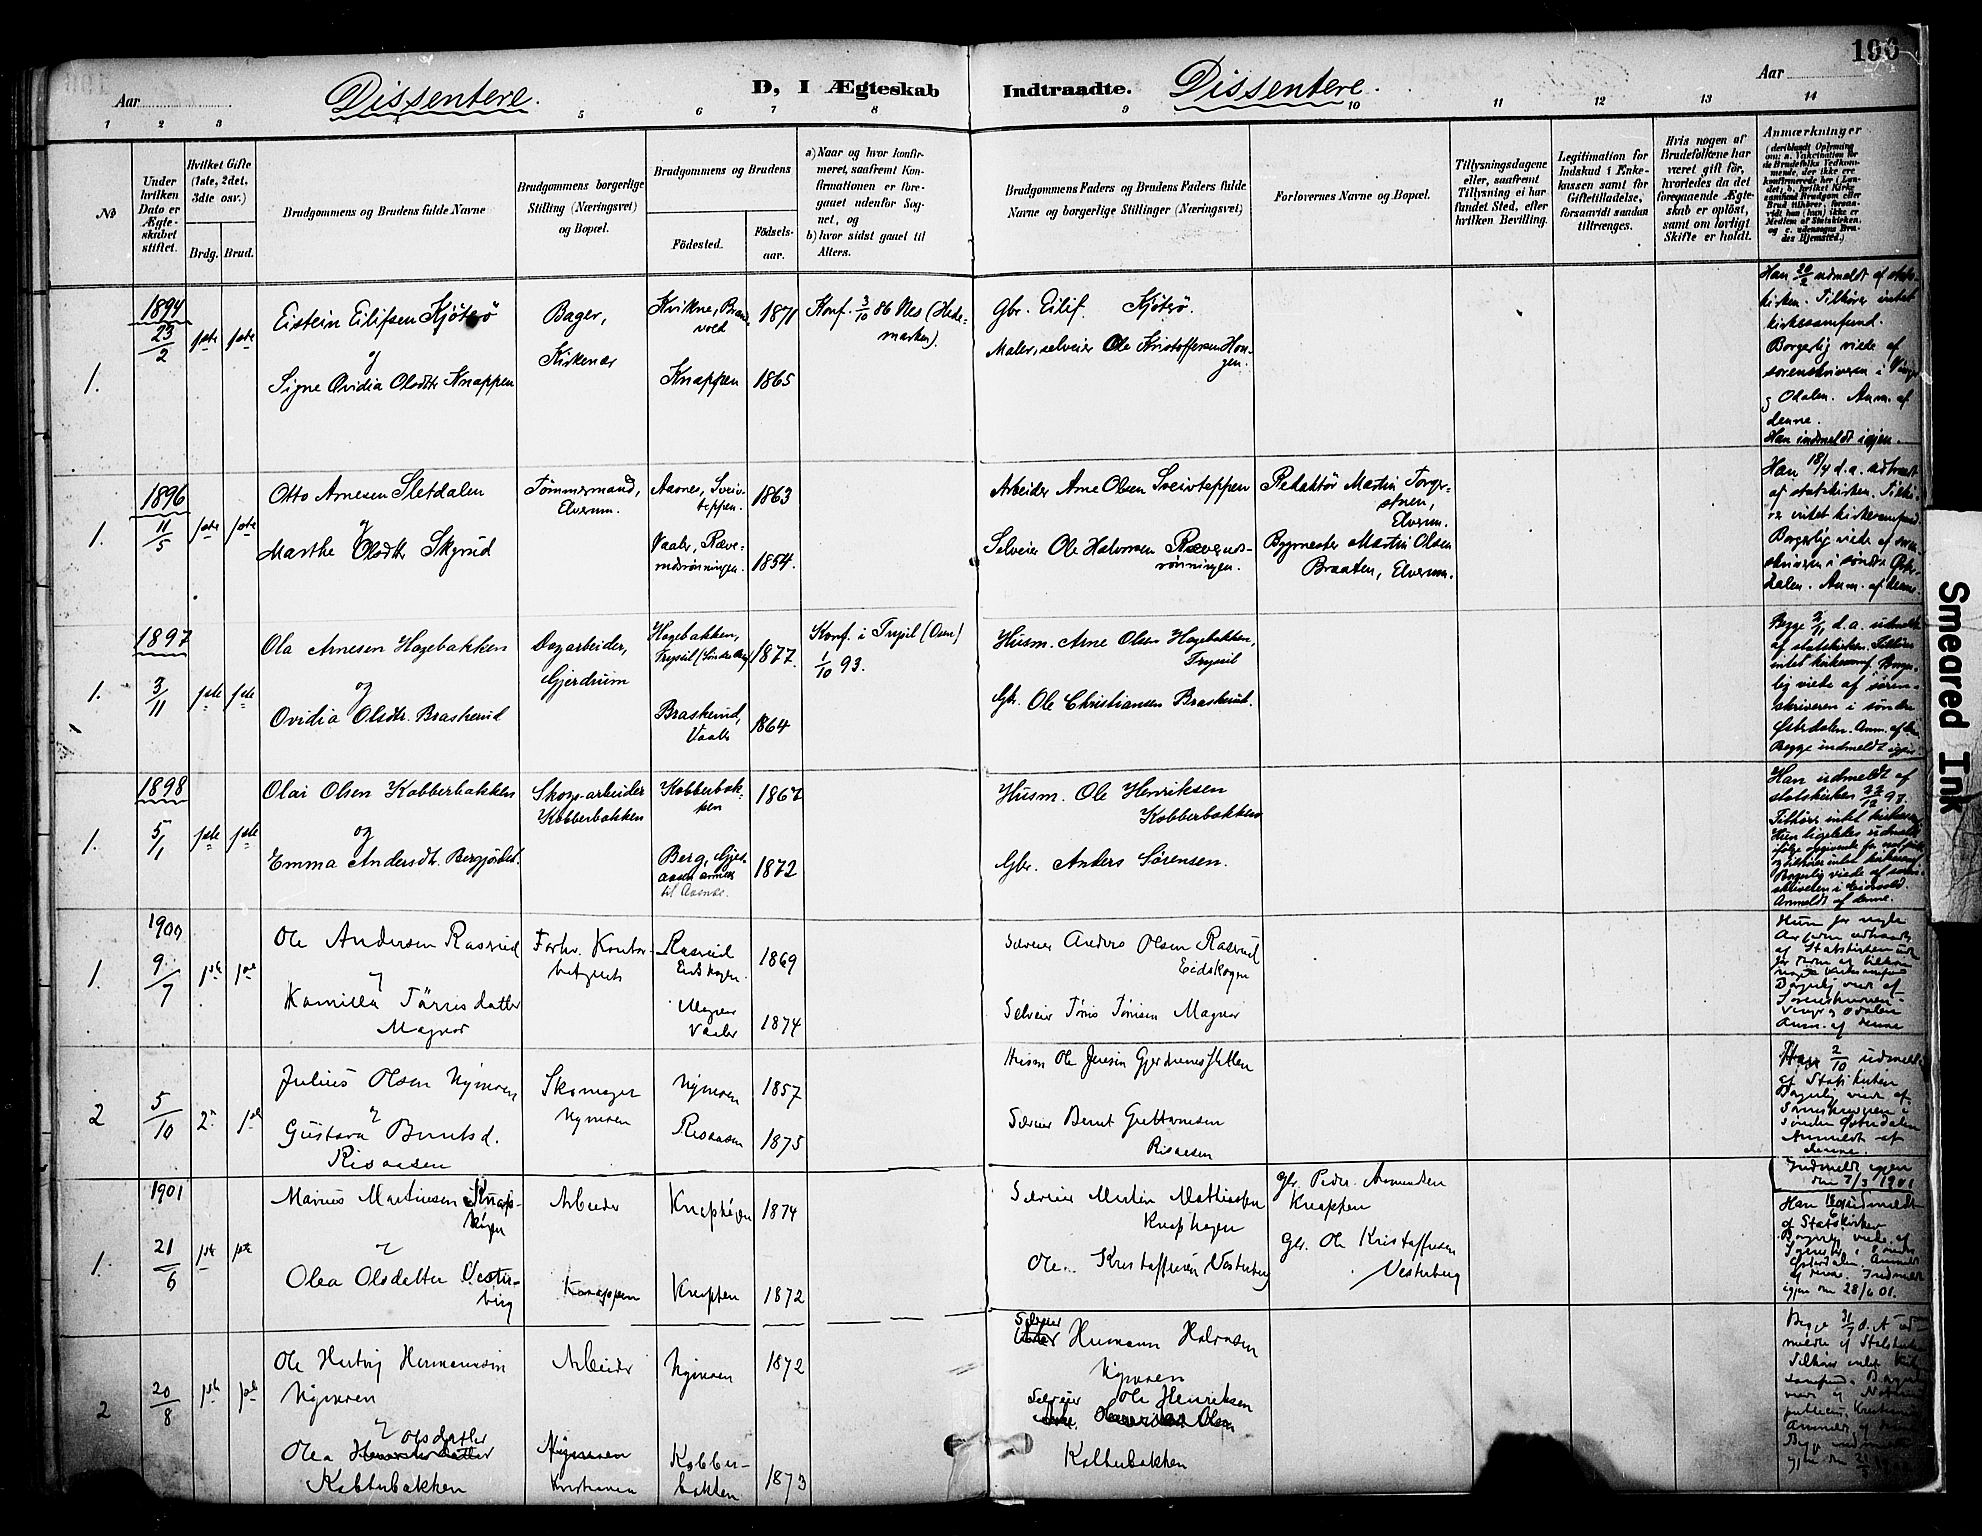 190
Aar
Dissentere.
D, I Ægteskab
Indtraadte.
Dissentere.
Aar
1 2 3 4 5 6 7 8 9 10 11 12 13 14
No
Under hvilken Dato er Ægteskabet stiftet.
Hvilket Gifte (1ste, 2det, 3die osv.)
Brdg. Brud.
Brudgommens og Brudens fulde Navne
Brudgommens borgerlige Stilling (Næringsvei) og Bopæl.
Brudgommens og Brudens
Fødested.
Fødselsaar.
a) Naar og hvor konfirmeret, saafremt Konfirmationen er foregaaet udenfor Sognet, og
b) hvor sidst gaaet til Alters.
Brudgommens Faders og Brudens Faders fulde Navne og borgerlige Stillinger (Næringsvei)
Forlovernes Navne og Bopæl.
Tillysningsdagene eller, saafremt Tillysning ei har fundet Sted, efter hvilken Bevilling.
Legitimation for Indskud i Enkekassen samt for Giftetilladelse, forsaavidt saadan tiltrænges.
Hvis nogen af Brudefolkene har været gift før, hvorledes da det foregaaende Ægteskab er opløst, samt om lovligt Skifte er holdt.
Anmærkninger
1894
1. 23/2 1ste 1ste
Eistein Eilifsen Kjøterø
og
Signe Ovidia Olsdtr Knappen
Bager,
Kirkenær
Kvikne, Brandvold 1871
Knappen 1865
Konf. 3/10 86 Nes (Hedemarken).
Gbr. Eilif Kjøterø.
Maler, selveier Ole Kristoffersen Hongen.
Han 20/2 udmeldt af statskirken. Tilhører intet kirkesamfund.
Borgerlig viede af sorenskriveren i Vinger
og Odalen. Anm. af denne.
Han indmeldt igjen.
1896
1. 11/5 1ste 1ste
Otto Arnesen Sletdalen
og
Marthe Olsdtr Skyrud
Tømmermand,
Elverum.
Aasnes, Sveivteppen. 1863
Vaaler, Rævenesrønningen. 1854.
Arbeider Arne Olsen Sveivteppen
Selveier Ole Halvorsen Rævenesrønningen.
Redaktør Martin Torgersen,
Elverum.
Bygmester Martin Olsen
Braaten, Elverum.
Han 18/4 d.a. udtraadt
af statskirken.
Borgerlig viede af sorenskriveren i søndre Østerdalen. Anm. af denne.
1897
1. 3/11 1ste 1ste
Ola Arnesen Hagebakken
og
Ovidia Olsdtr. Braskerud
Dagarbeider,
Gjerdrum
Hagebakken,
Trysil (Søndre Osen) 1877.
Braskerud,
Vaaler 1864
Konf. i Trysil (Osen)
1/10 93.
Husm. Arne Olsen Hagebakken,
Trysil
Gbr. Ole Christiansen Braskerud.
Begge 2/11 d.a. udmeldt
af statskirken. Tilhører
intet kirkesamf. Borgerlig viede af sorenskriveren i søndre
Østerdalen. Anm. af denne.
Begge indmeldt igjen.
1898
1. 5/1 1ste 1ste
Olai Olsen Kobberbakken
og
Emma Andersdtr. Bergjordet.
Skogsarbeider
Kobberbakken
Kobberbakken 1867
Berg, 1872
til Aasnes.
Husm. Ole Henriksen
Kobberbakken
Gbr. Anders Sørensen.
Han udmeldt af
statskirken 22/12 97.
Tilhører intet kirkesamf.
Borgerlig viede af sorenskriveren i Eidsvold.
Anmeldt af denne.
1900
1. 9/7 1ste 1ste
Ole Andersen Rasrud
og
Kamilla Tørrisdatter
Magnor
Forhv. Kontorbetjent
Rasrud
Eidskogen 1869
Magnor
Vaaler 1874
Selveier Anders Olsen Rasrud
Eidskogen
Selveier Tøris Tørisen Magnor
Borgerlig viet af
Sorenskriveren
Vinger og Odalen
Anm. af denne
2 5/10 2. 1ste
Julius Olsen Nymoen
og
Gustava Berntsd.
Risaasen
Skomager
Nymoen
Nymoen 1857
Risaasen 1875
Husm Ole Jensen
Selveier Bernt Guttormsen
Risaasen
Han 2/10 udmeldt
af Statskirken
Borgerlig viet af
Sorenskriveren i
Søndre Østerdalen
Anmeldt af
denne.
Indmeldt igjen
den 7/3 1901
1901
1. 21/6 1ste 1ste
Marius Martinsen Knaphøgen
og
Olea Olsdatter Vesterberg
Arbeider
Knappen
Knaphøgen 1874
Knappen 1872
Selveier Martin Mathiassen
Knaphøgen
Ole Kristoffersen Vesterberg
Gbr. Peder Amundsen
Knappen
Gbr. Ole Kristoffersen
Vesterberg
Han udmeldt
af Statskirken
Borgerlig viede af
Sorenskr. i Søndre
Østerdalen. Anmeldt
af denne. Indmeldt
igjen den 28/6 01.
2 20/8 1ste 1ste
Ole Hartvig Hermansen
Nymoen
og
Olsdatter
Olea
Kobberbakken
Arbeider
Nymoen
Kristiania
Nymoen 1872
Kobberbakken 1873
Selveier
Hermann Halvorsen
Nymoen
Selveier Ole Henriksen
Kobberbakken
Smeared Ink